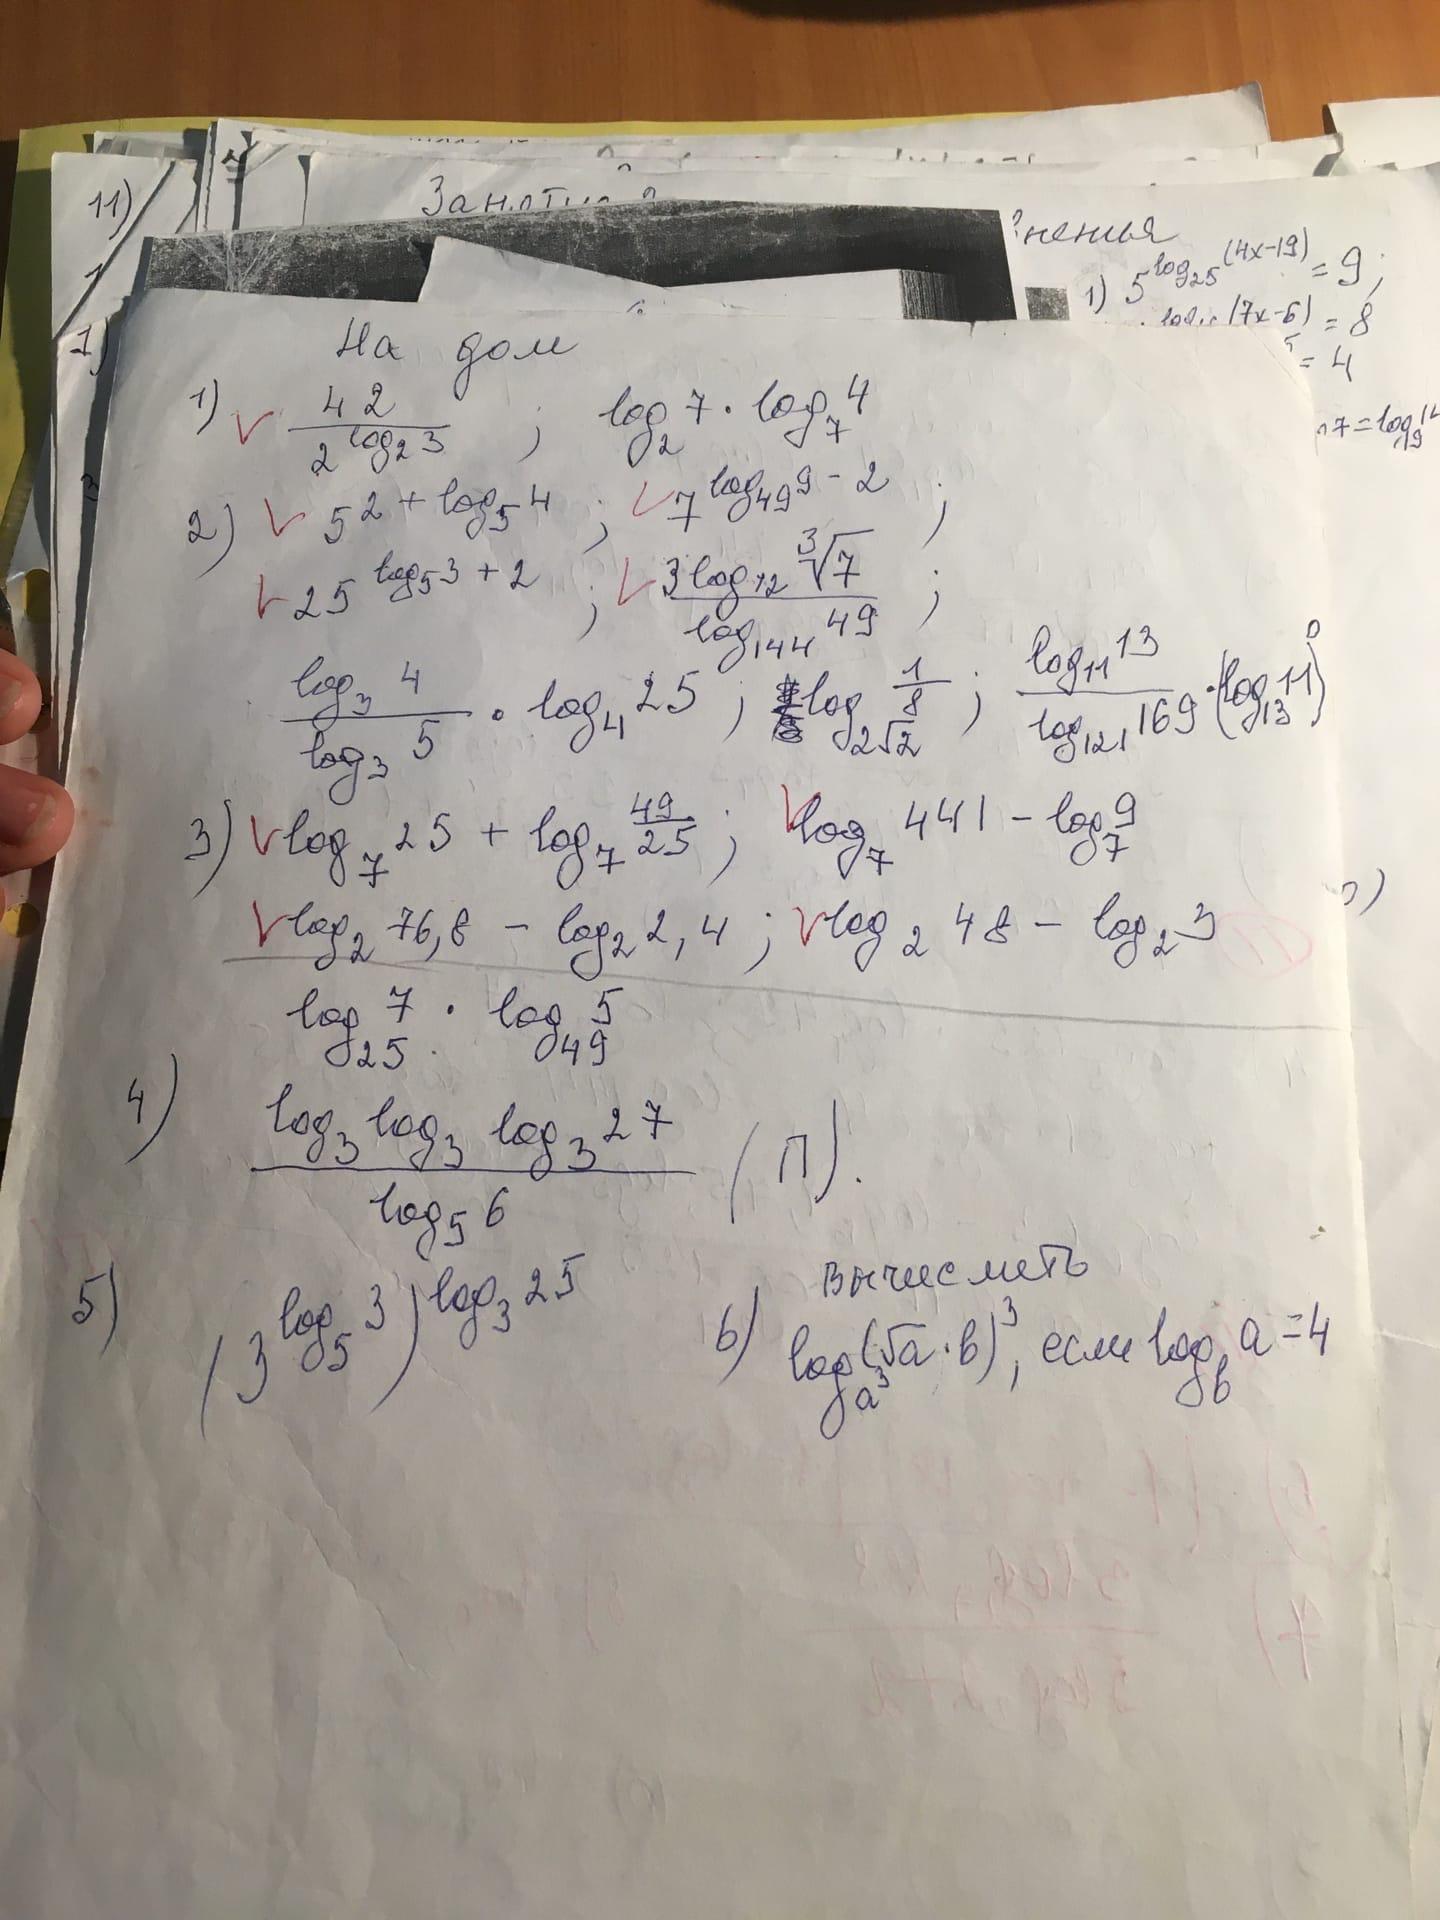 11)
Занятие
1) 5^log₂₅(4x-19) = 9;
(7x-6) = 8
= 4
7 = log₉
1)
На дом
1) ✓ 42 / 2^log₂3 ; log₂7 · log₇4
2) ✓ 5^2 + log₅4 ; ✓ 7^log₄₉9 - 2 ;
✓ 25^log₅3 + 2 ; ✓ 3log₁₂∛7 / log₁₄₄49 ;
log₃4 / log₃5 · log₄25 ; log_2√2 1/8 ; log₁₁13 / log₁₂₁169 · (log₁₃11)^0
3) ✓ log₇25 + log₇49/25 ; ✓ log₇441 - log₇9
✓ log₂76,8 - log₂2,4 ; ✓ log₂48 - log₂3
log₂₅7 · log₄₉5
4) log₃log₃log₃27 / log₅6 (П).
5) (3^log₅3)^log₃25
6) Вычислить
log_a³(√a·b)³, если log_b a = 4